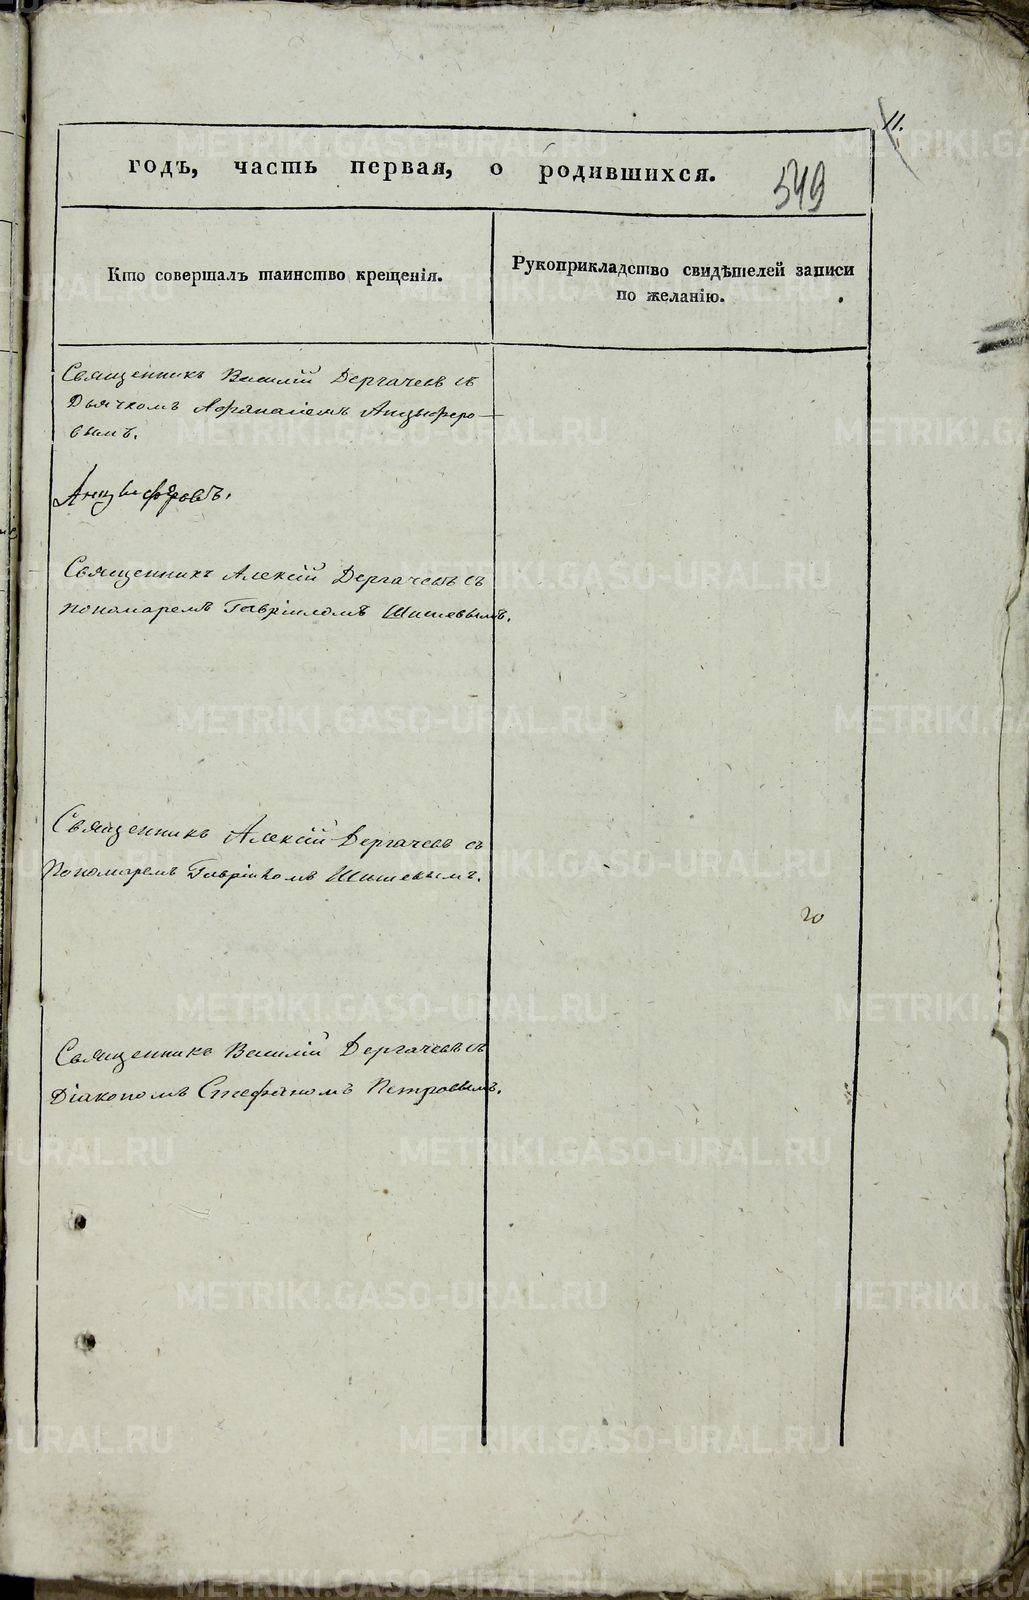 11.
годъ, часть первая, о родившихся.
549
Кто совершалъ таинство крещенія.
Рукоприкладство свидѣтелей записи
по желанію.
Священникъ Василій Дергачевъ съ
Дьячкомъ Афанасіемъ Анцыферо-
вымъ.
Анцыферовъ.
Священникъ Алексій Дергачевъ съ
пономаремъ Гавріиломъ Шишевымъ.
Священникъ Алексій Дергачевъ съ
Пономаремъ Гавріиломъ Шишевымъ.
Священникъ Василій Дергачевъ съ
Діакономъ Стефаномъ Петровымъ.
METRIKI.GASO-URAL.RU